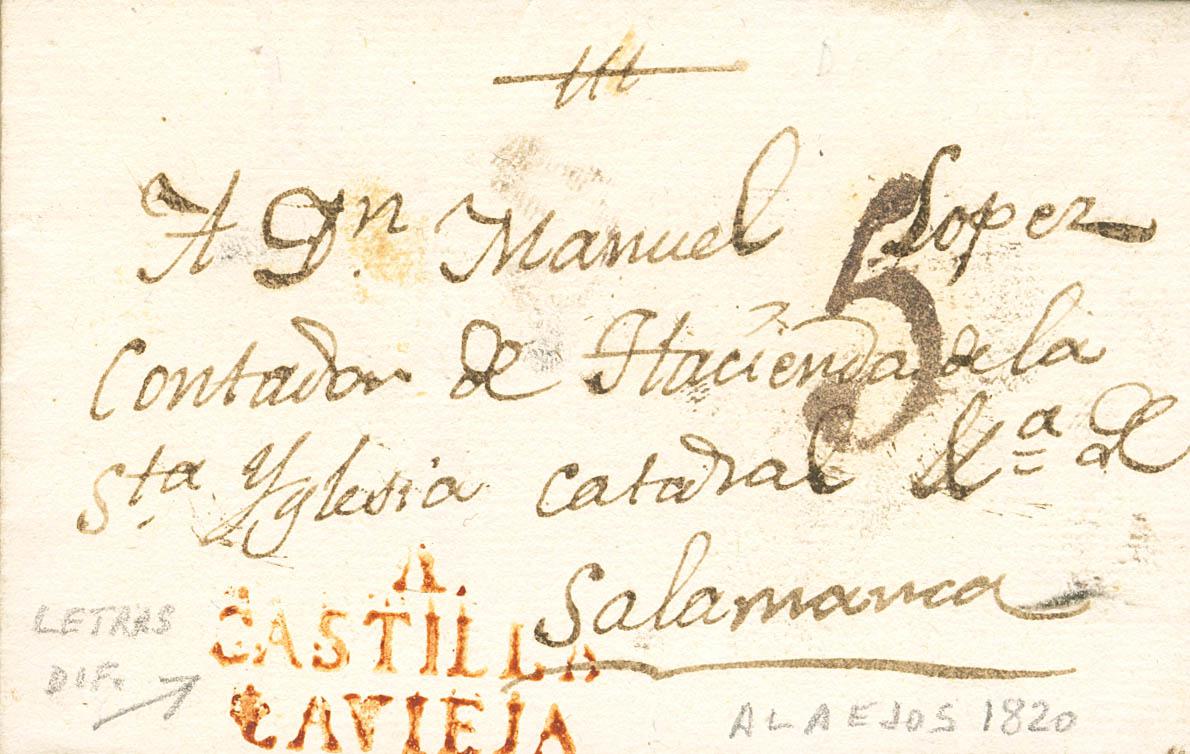 A Dn. Manuel Lopez
5
Contador de Hacienda de la
Sta. Yglesia Catadral de
Salamanca
A.
CASTILLA
LAVIEJA
LETRAS
DIF.
ALAEJOS 1820